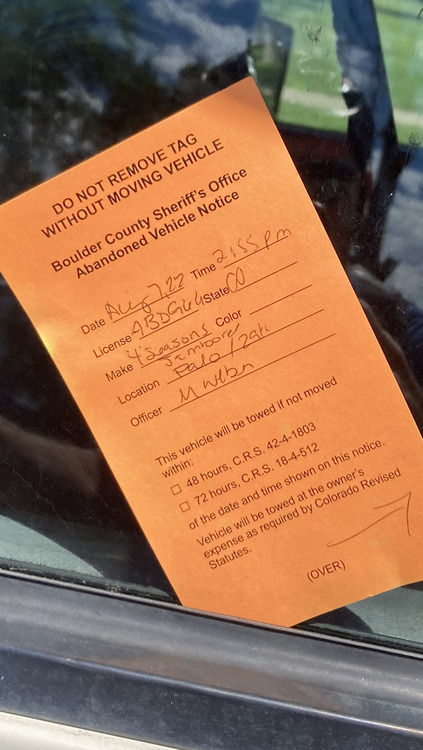 DO NOT REMOVE TAG
WITHOUT MOVING VEHICLE
Boulder County Sheriff's Office
Abandoned Vehicle Notice
Date Aug 7, 22 Time 2:55 pm
License State CO
Make 4 Seasons Color
Jamboree
Location Palo /
Officer
This vehicle will be towed if not moved
within:
☐ 48 hours, C.R.S. 42-4-1803
☐ 72 hours, C.R.S. 18-4-512
of the date and time shown on this notice.
Vehicle will be towed at the owner's
expense as required by Colorado Revised
Statutes.
(OVER)